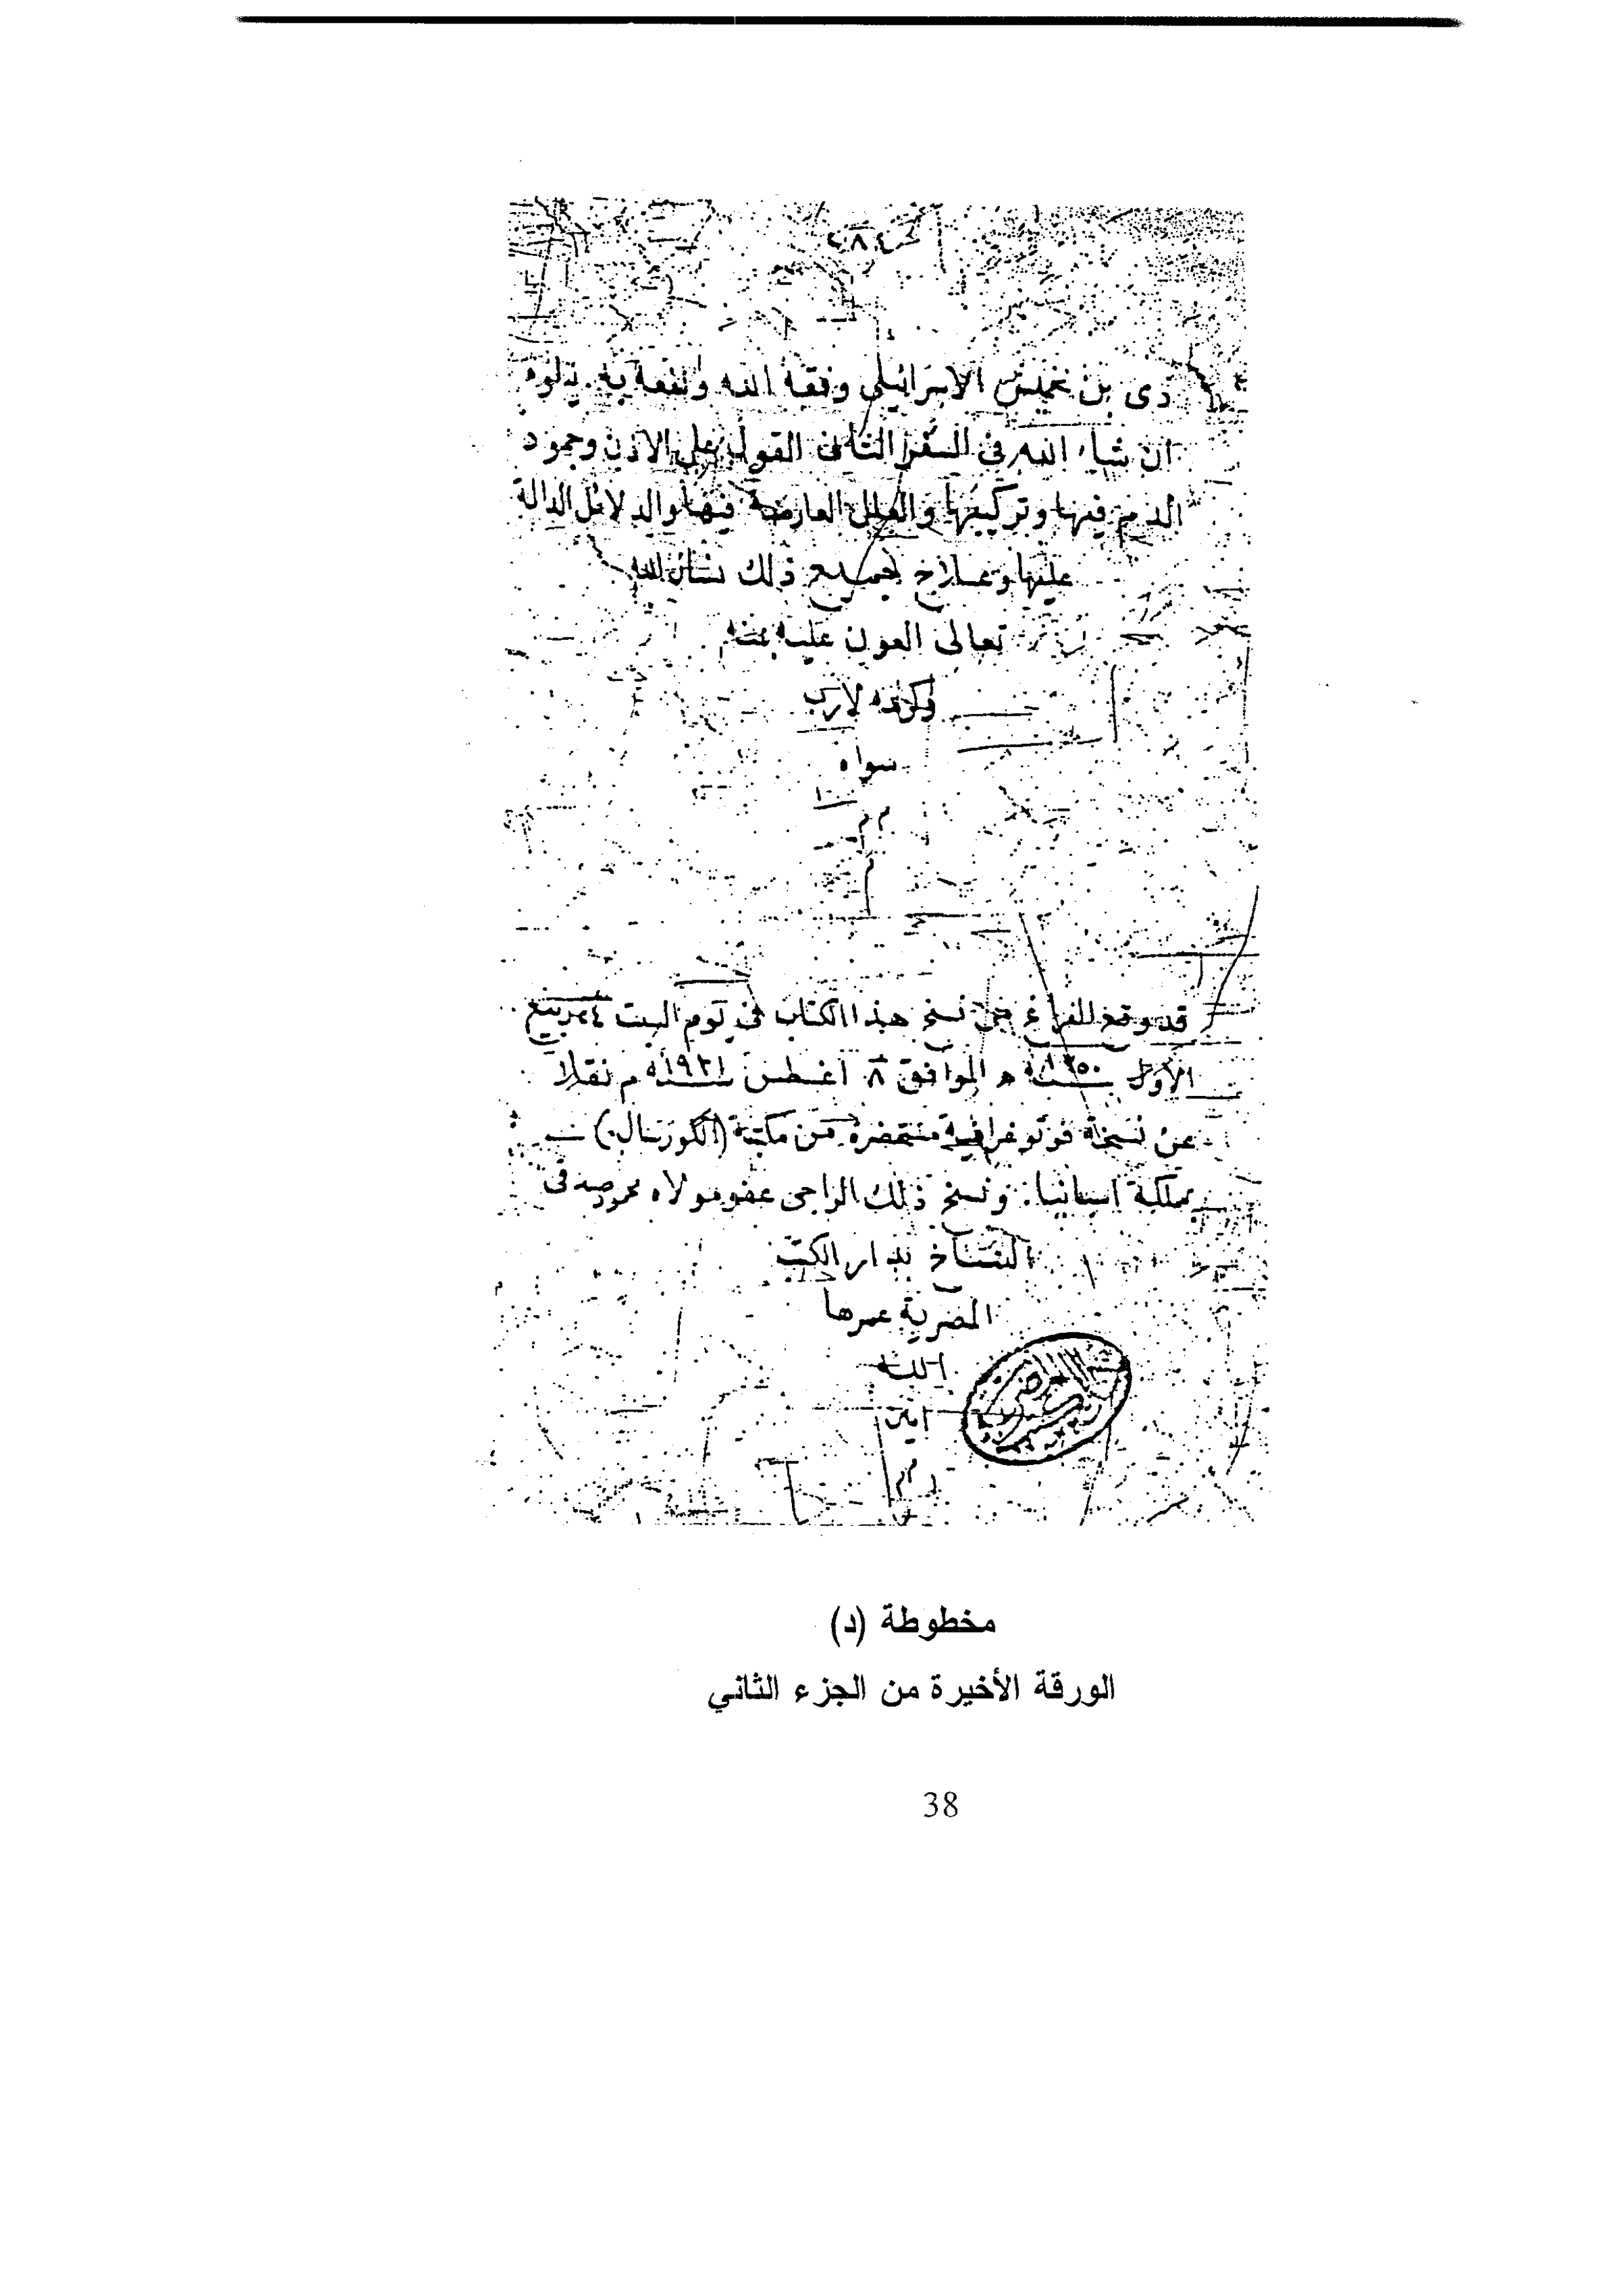 دى بن خميس الاسرائيلي وفقه الله ونفعه به. يتلوه
ان شاء الله في السفر الثانى القول على الاذن وجمود
الدم فيها وتركيبها والعلل العارضة فيها والدلائل الدالة
عليها وعلاج جميع ذلك نسأل الله
تعالى العون عليه بمنه
وكرمه لا رب
سواه
م م
م
قد وقع الفراغ من نسخ هذا الكتاب فى يوم السبت ٢٤ ربيع
الأول سنة ١٣٥٠ ه الموافق ٨ اغسطس سنة ١٩٣١ م نقلا
عن نسخة فوتوغرافية مستحضرة من مكتبة (الكورنيال)
بمملكة اسبانيا. ونسخ ذلك الراجى عفو مولاه محمود صدقى
النساخ بدار الكتب
المصرية عمرها
الله
امين
مخطوطة (د)
الورقة الأخيرة من الجزء الثاني
38